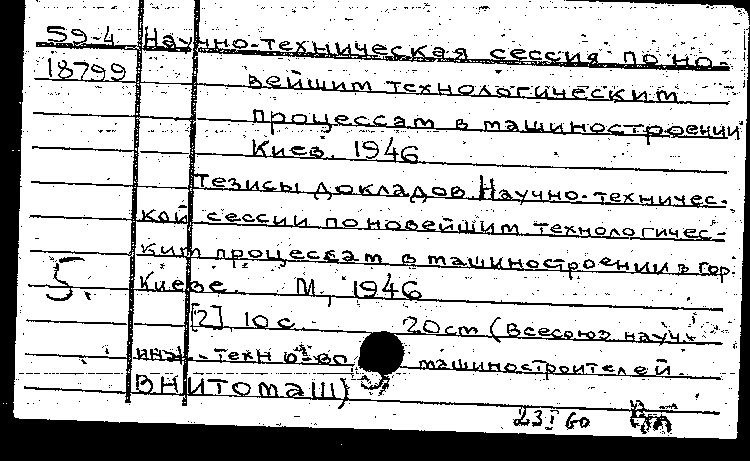 59-4 Научно-техническая сессия по но-
18799 вейшим технологическим
процессам в машиностроении
Киев. 1946
Тезисы докладов Научно-техничес-
кой сессии по новейшим технологичес-
ким процессам в машиностроении в гор.
5. Киеве. М., 1946
[2], 10 с. 20 cm (Всесоюз науч.
инж.-техн о-во машиностроителей
ВНИТОМАШ)
23 I 60